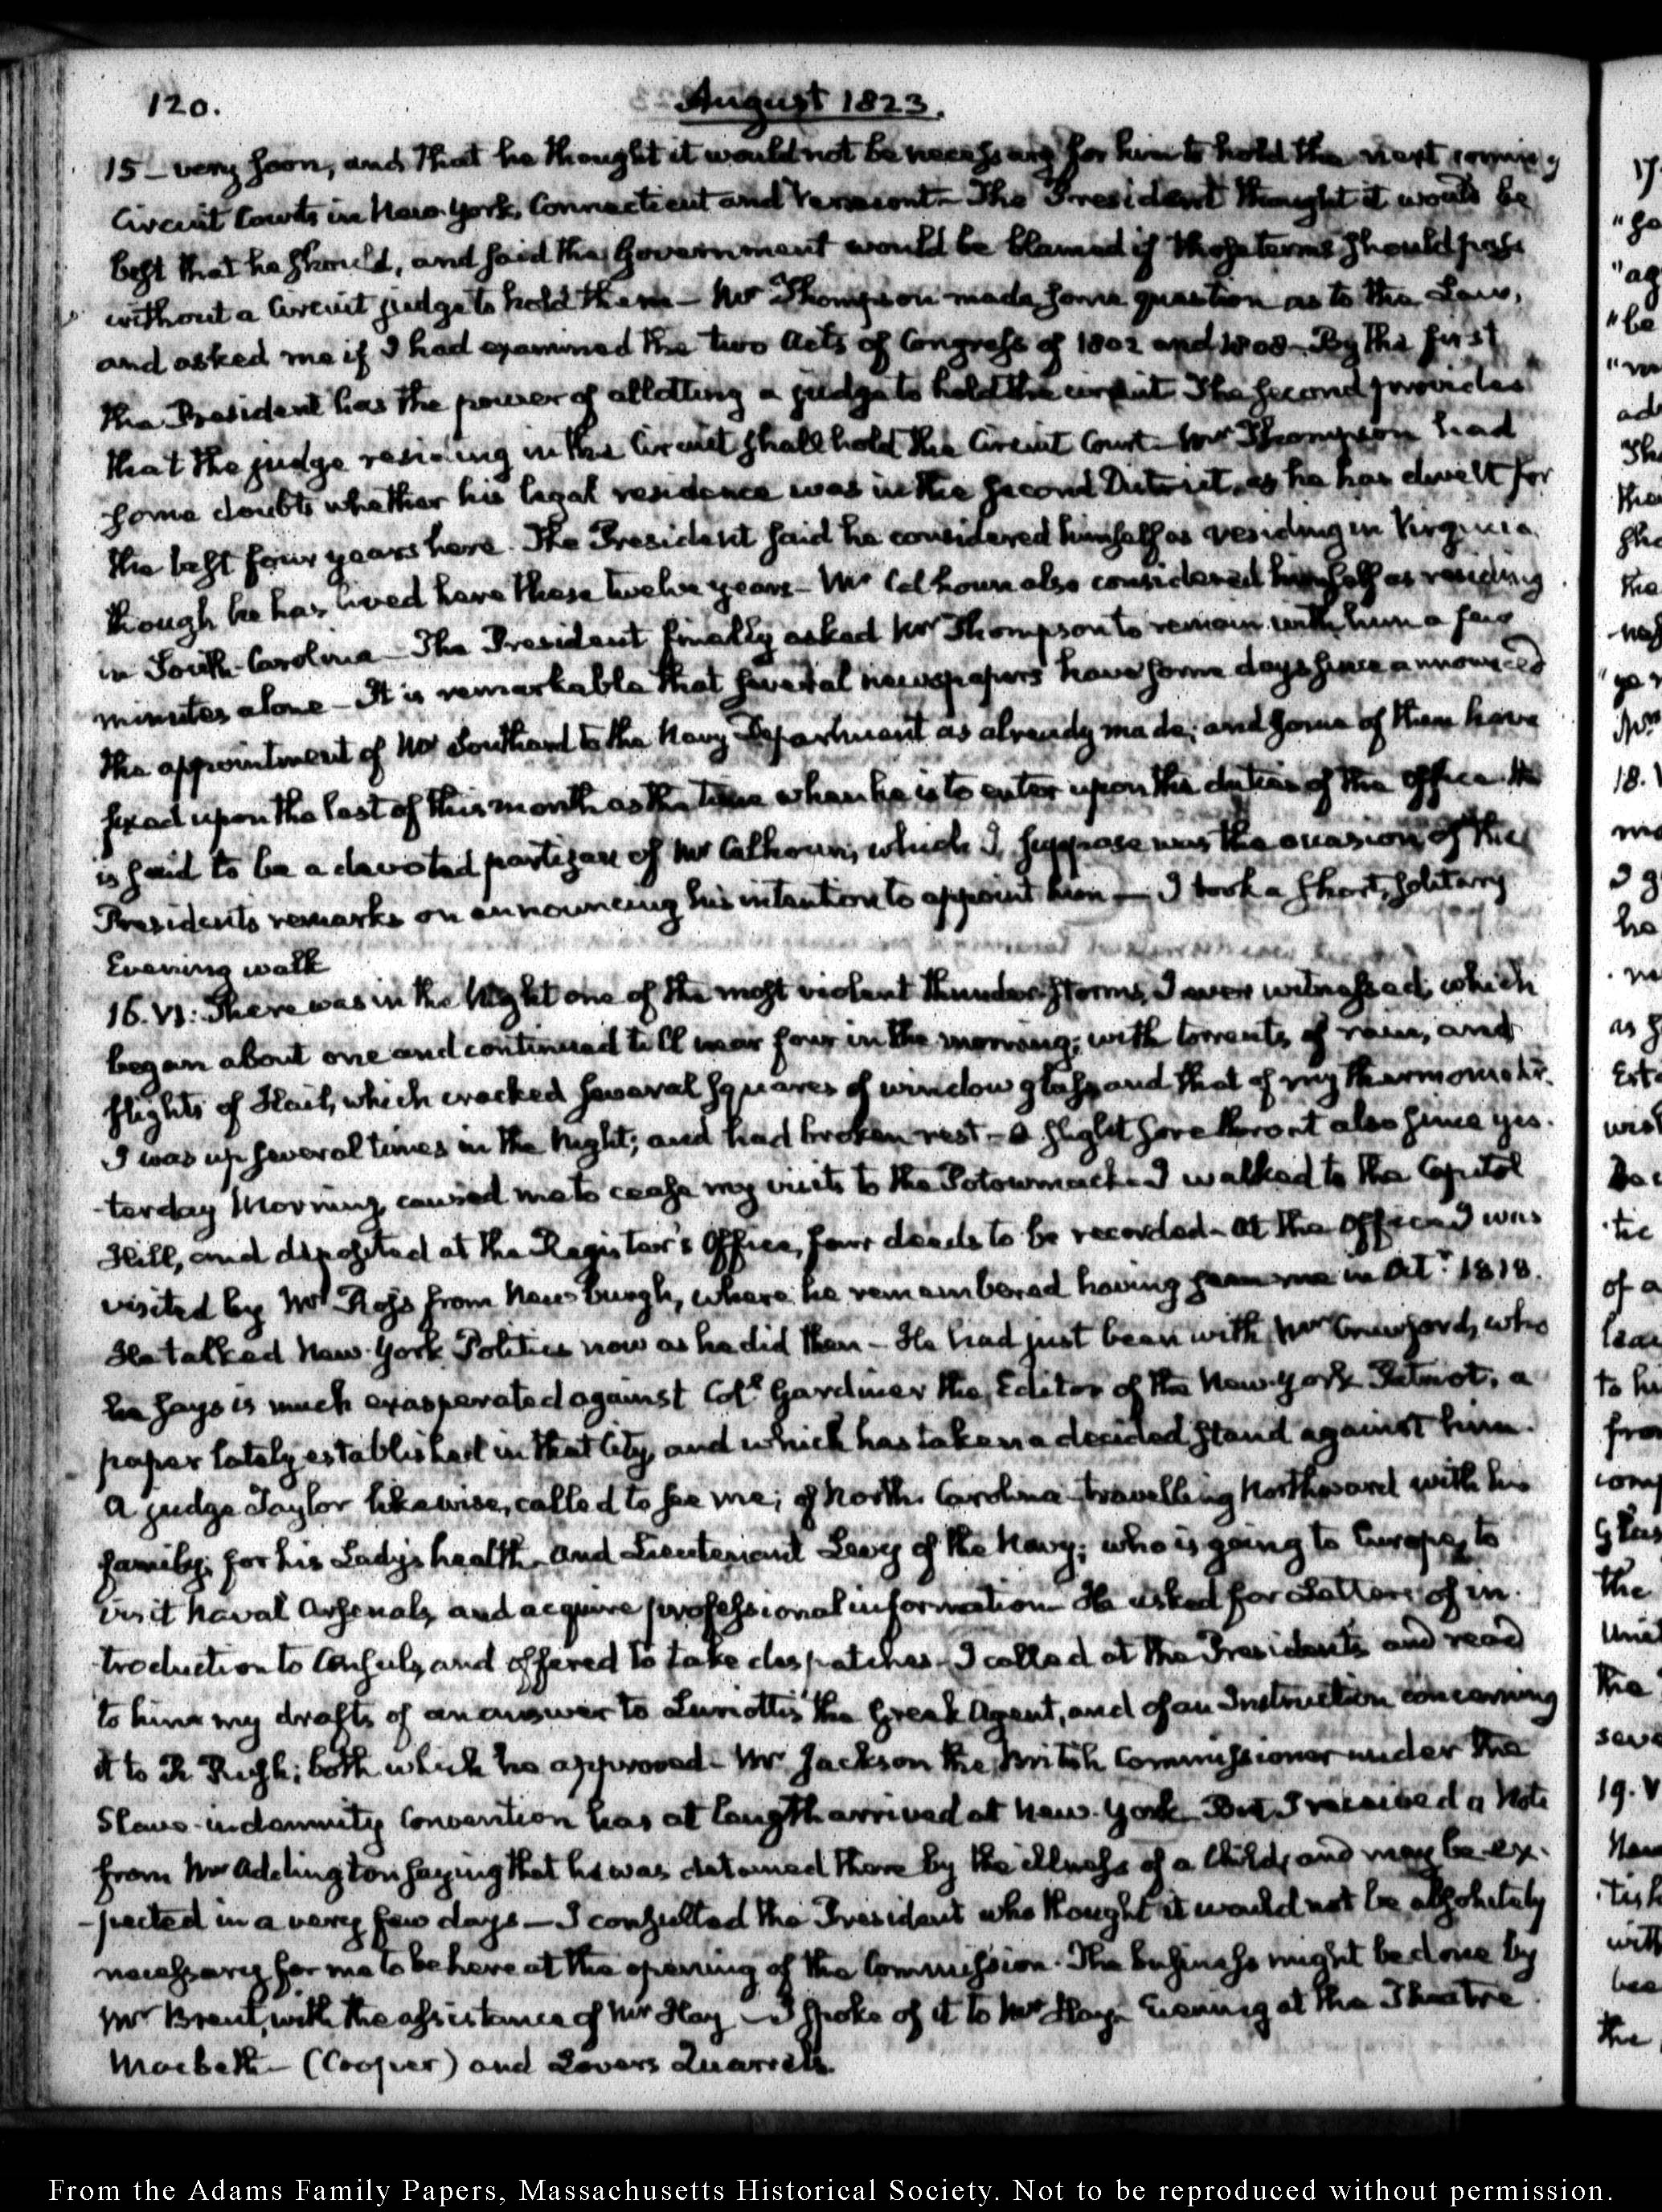 120. August 1823.
15 — very soon, and that he thought it would not be necessary for him to hold the next coming
Circuit Courts in New-York, Connecticut and Vermont — The President thought it would be
best that he should, and said the Government would be blamed if those terms should pass
without a Circuit judge to hold them — Mr Thompson made some question as to the Law,
and asked me if I had examined the two Acts of Congress of 1802 and 1808 — By the first
the President has the power of allotting a judge to hold the circuit. The second provides
that the judge residing in the Circuit shall hold the Circuit Court — Mr Thompson had
some doubts whether his legal residence was in the second District, as he has dwelt for
the last four years here. The President said he considered himself as residing in Virginia,
though he has lived here these twelve years — Mr Calhoun also considered himself as residing
in South-Carolina — The President finally asked Mr Thompson to remain with him a few
minutes alone — It is remarkable that several newspapers have some days since announced
the appointment of Mr Southard to the Navy Department as already made; and some of them have
fixed upon the last of this month as the time when he is to enter upon the duties of the Office. He
is said to be a devoted partizan of Mr Calhoun, which I suppose was the occasion of the
Presidents remarks on announcing his intention to appoint him — I took a short, solitary
Evening walk
16. VI: There was in the Night one of the most violent thunder-storms, I ever witnessed; which
began about one and continued till near four in the morning; with torrents of rain, and
flights of Hail, which cracked several squares of window glass, and that of my thermometer.
I was up several times in the Night; and had broken rest — a slight sore throat also since yes-
-terday Morning, caused me to cease my visits to the Potowmack — I walked to the Capitol
Hill, and deposited at the Register's Office, four deeds to be recorded — At the Office I was
visited by Mr Ross from Newburgh, where he remembered having seen me in Octr 1818.
He talked New-York Politics now as he did then — He had just been with Mr Crawford, who
he says is much exasperated against Coll Gardiner the Editor of the New-York Patriot; a
paper lately established in that City, and which has taken a decided stand against him.
A judge Taylor likewise, called to see me; of North-Carolina travelling Northward with his
family; for his Lady's health — And Lieutenant Levy of the Navy; who is going to Europe, to
visit Naval Arsenals, and acquire professional information — He asked for Letters of in-
-troduction to Consuls, and offered to take despatches — I called at the Presidents and read
to him my drafts of an answer to Luriottis the Greek Agent, and of an Instruction concerning
it to R Rush; both which he approved — Mr Jackson the British Commissioner under the
Slave-indemnity Convention has at length arrived at New-York. But I received a Note
from Mr Addington saying that he was detained there by the illness of a Child, and may be ex-
-pected in a very few days — I consulted the President who thought it would not be absolutely
necessary for me to be here at the opening of the Commission. The business might be done by
Mr Brent, with the assistance of Mr Hay — I spoke of it to Mr Hay — Evening at the Theatre.
Macbeth — (Cooper) and Lovers Quarrels.
From the Adams Family Papers, Massachusetts Historical Society. Not to be reproduced without permission.